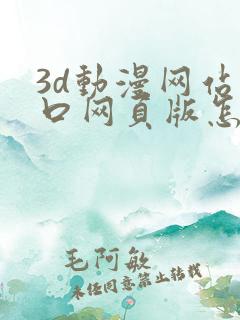 3d動漫网估
口网页版怎
毛阿敏
未经同意禁止转载